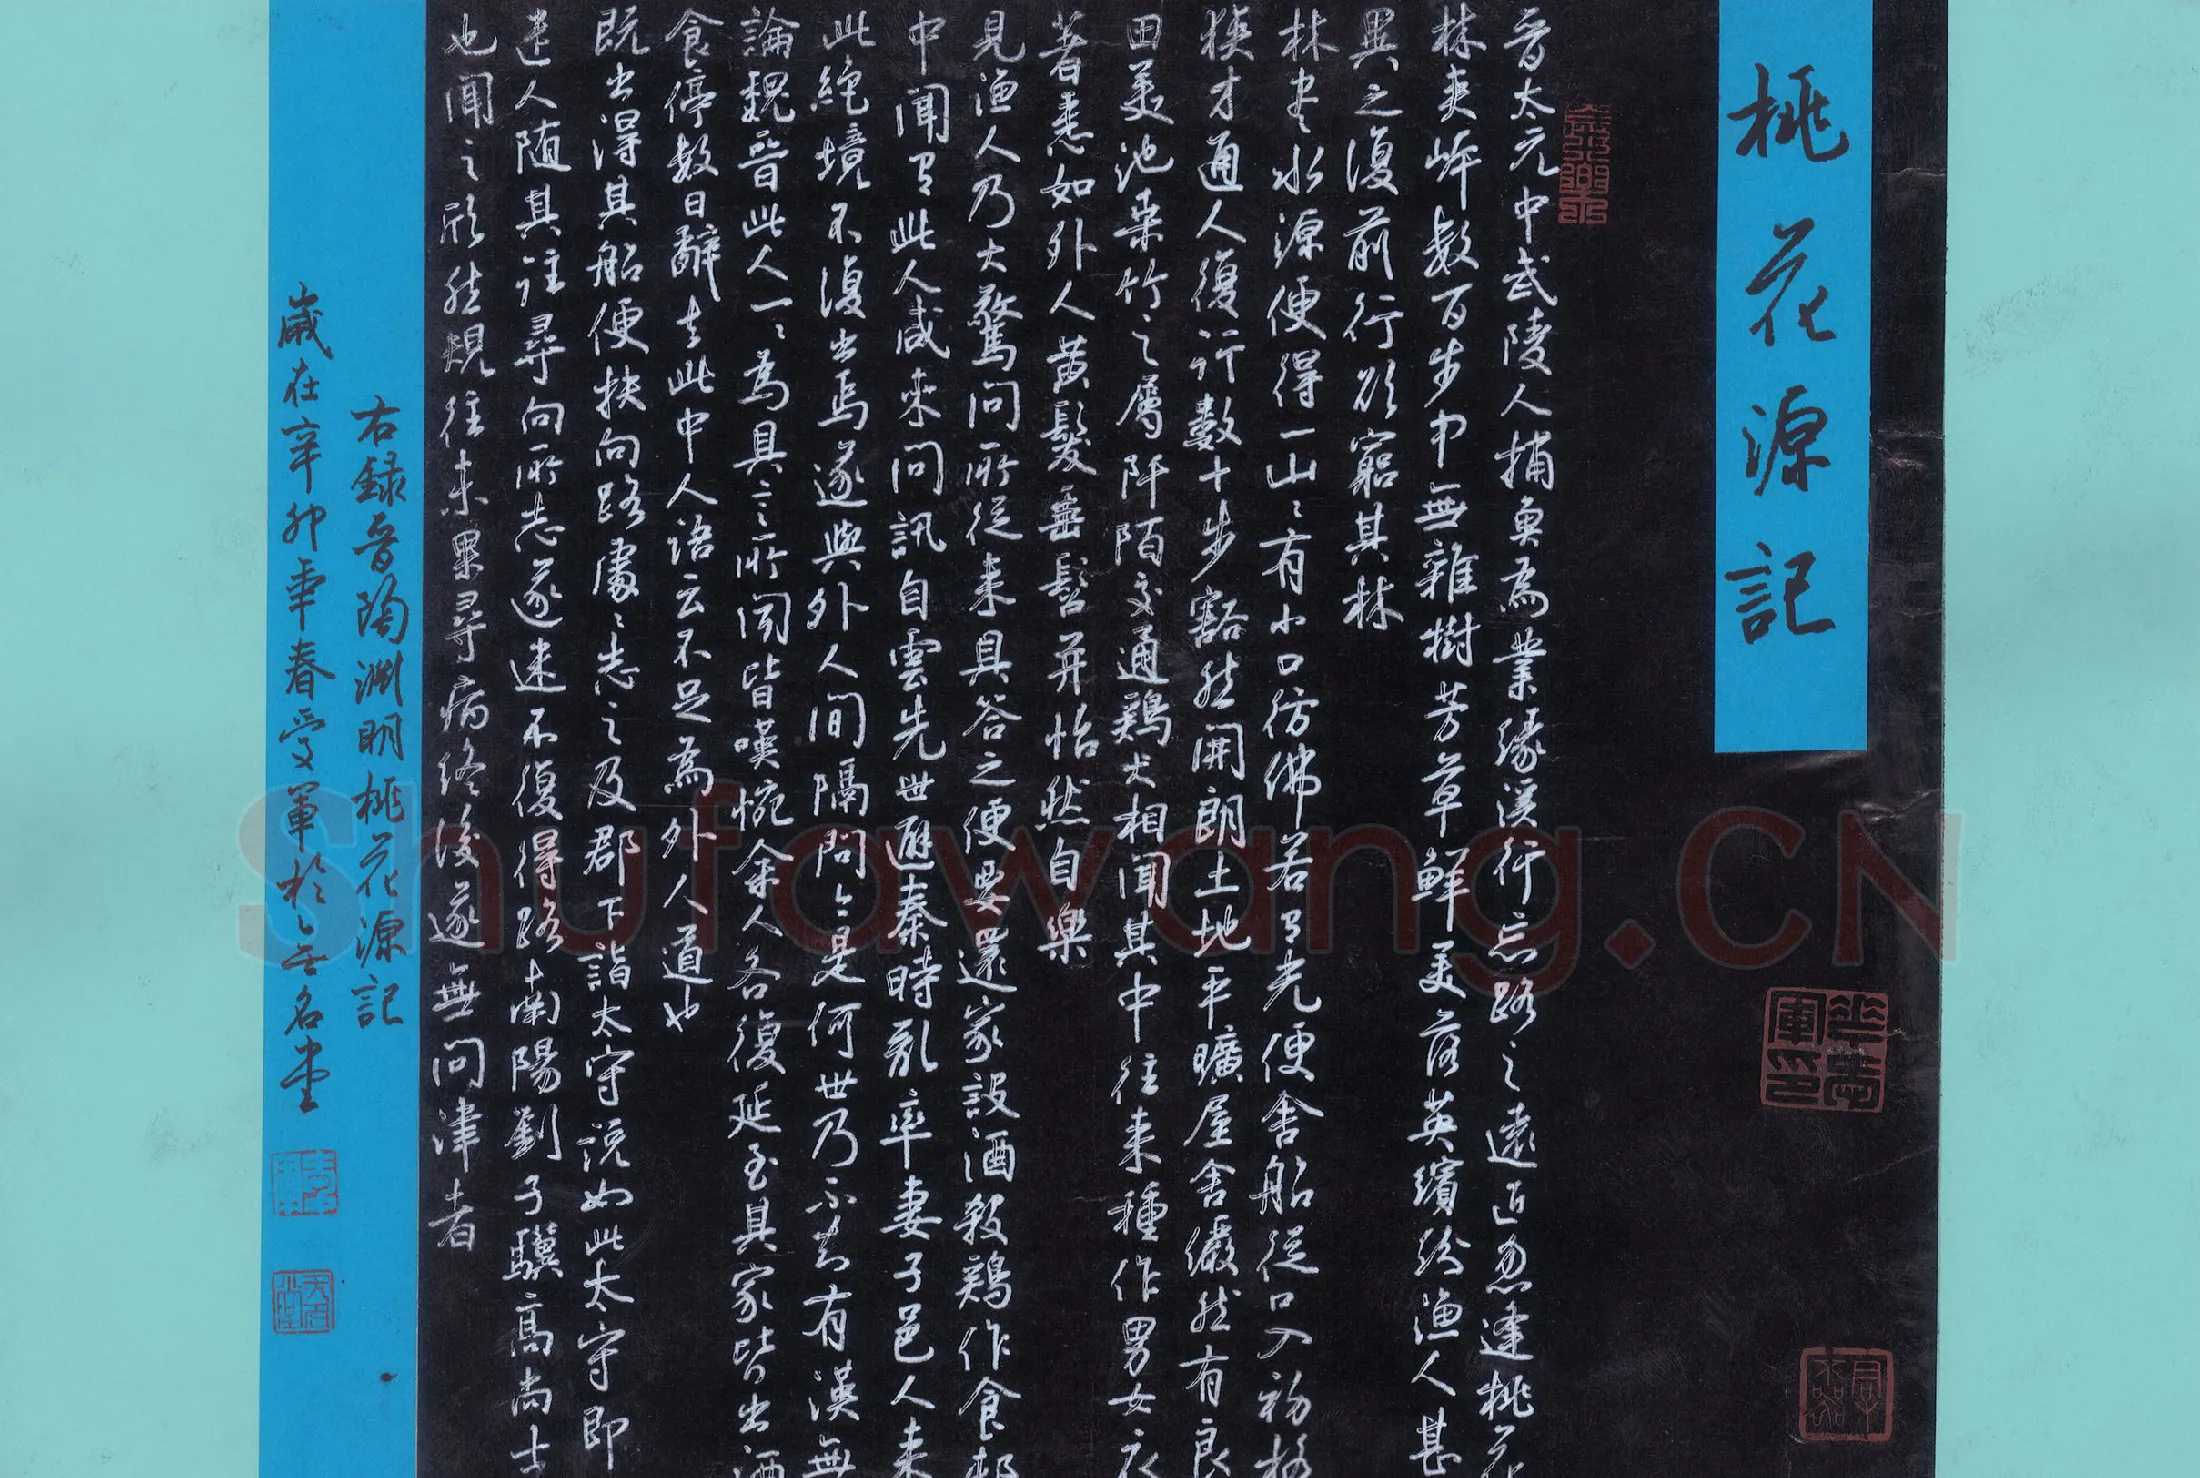 桃花源記
晉太元中武陵人捕魚為業緣溪行忘路之遠近忽逢桃花
林夾岸數百步中無雜樹芳草鮮美落英繽紛漁人甚
異之復前行欲窮其林
林盡水源便得一山〻有小口彷彿若有光便舍船從口入初極
狹才通人復行數十步豁然開朗土地平曠屋舍儼然有良
田美池桑竹之屬阡陌交通鷄犬相聞其中往來種作男女衣
著悉如外人黃髮垂髫并怡然自樂
見漁人乃大驚問所從來具答之便要還家設酒殺鷄作食村
中聞有此人咸來問訊自雲先世避秦時亂率妻子邑人来
此絶境不復出焉遂與外人間隔問今是何世乃不知有漢無
論魏晉此人一〻為具言所聞皆嘆惋余人各復延至其家皆出酒
食停数日辭去此中人語云不足為外人道也
既出得其船便扶向路處〻志之及郡下詣太守說如此太守即
遣人随其往尋向所志遂迷不復得路南陽劉子驥高尚士
也聞之欣然規往未果尋病終後遂無問津者
右録晉陶淵明桃花源記
歲在辛卯年春受軍於〻无名堂
Shufawang.CN